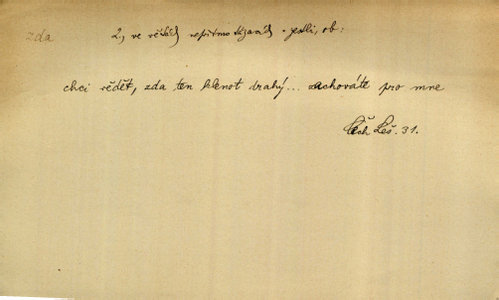 zda 2, ve větách nepřímo tázacích - jestli, ob:
chci vědět, zda ten klenot drahý... zachováte pro mne
Čech Leš. 31.